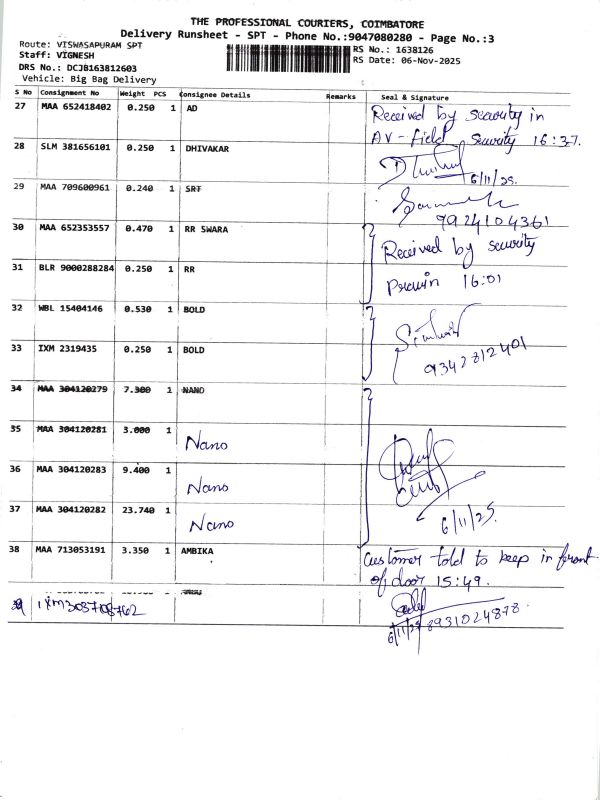 THE PROFESSIONAL COURIERS, COIMBATORE
Delivery Runsheet - SPT - Phone No.:9047080280 - Page No.:3
Route: VISWASAPURAM SPT
Staff: VIGNESH
DRS No.: DCJB163812603
Vehicle: Big Bag Delivery
RS No.: 1638126
RS Date: 06-Nov-2025
S No Consignment No Weight PCS Consignee Details Remarks Seal & Signature
27 MAA 652418402 0.250 1 AD Received by security in
AV-Field security 16:37.
28 SLM 381656101 0.250 1 DHIVAKAR
6/11/25.
29 MAA 709600961 0.240 1 SRT
9924104361
30 MAA 652353557 0.470 1 RR SWARA Received by security
31 BLR 9000288284 0.250 1 RR Prawin 16:01
32 WBL 15404146 0.530 1 BOLD
33 IXM 2319435 0.250 1 BOLD 9342812401
34 MAA 304120279 7.300 1 NANO
35 MAA 304120281 3.000 1 Nano
36 MAA 304120283 9.400 1 Nano
37 MAA 304120282 23.740 1 Nano
6/11/25.
38 MAA 713053191 3.350 1 AMBIKA Customer told to keep in front
of door 15:49.
6/11/25 8931024878